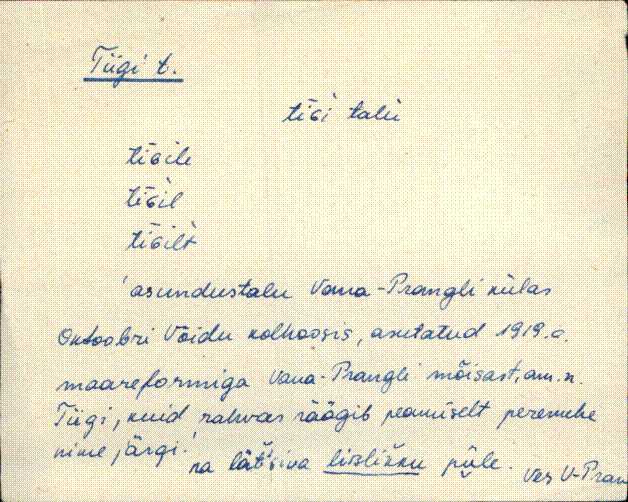 Tiigi t.
tiɢi talu
tiɢile
tiɢil
tiɢilt
asundustalu Vana-Prangli külas
Oktoobri Võidu kolhoosis, asutatud 1919.a.
maareformiga Vana-Prangli mõisast, am.n.
Tiigi, kuid rahvas räägib peamiselt peremehe
nime järgi.
na lätsiva püle.
Ves V-Pran